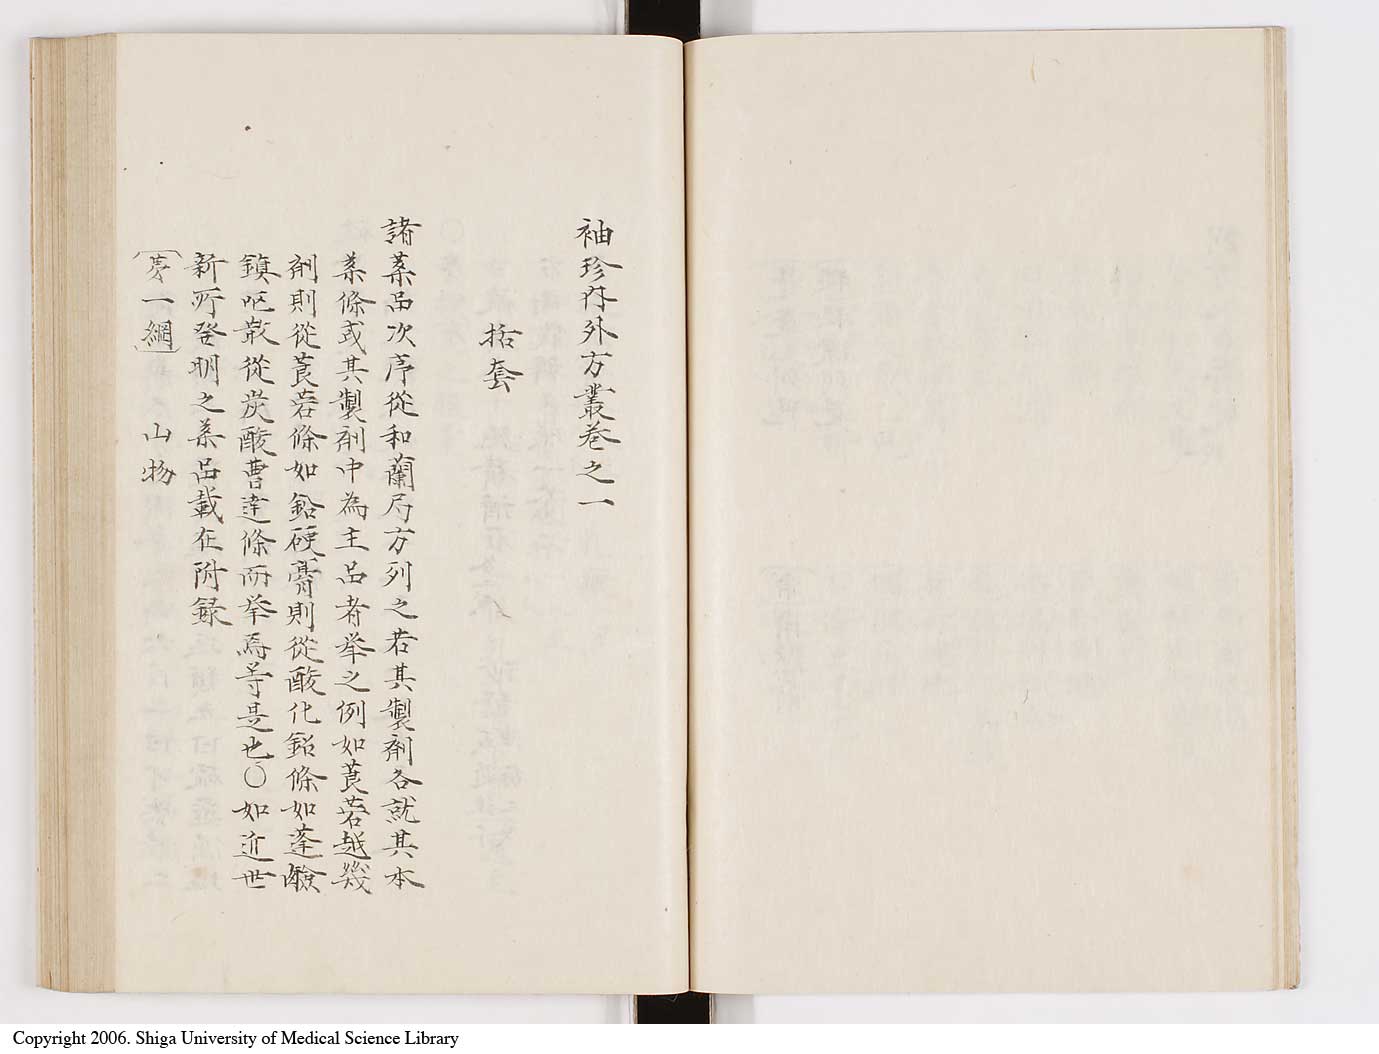 袖珍内外方叢巻之一
括套
諸薬品次序従和蘭局方列之若其製剤各就其本
薬條或其製剤中為主品者挙之例如莨菪越幾
剤則従莨菪條如鉛硬膏則従酸化鉛條如蓬醶
鎮嘔散従炭酸曹達條而挙焉等是也〇如近世
新所発明之薬品載在附録
第一綱 山物
Copyright 2006. Shiga University of Medical Science Library